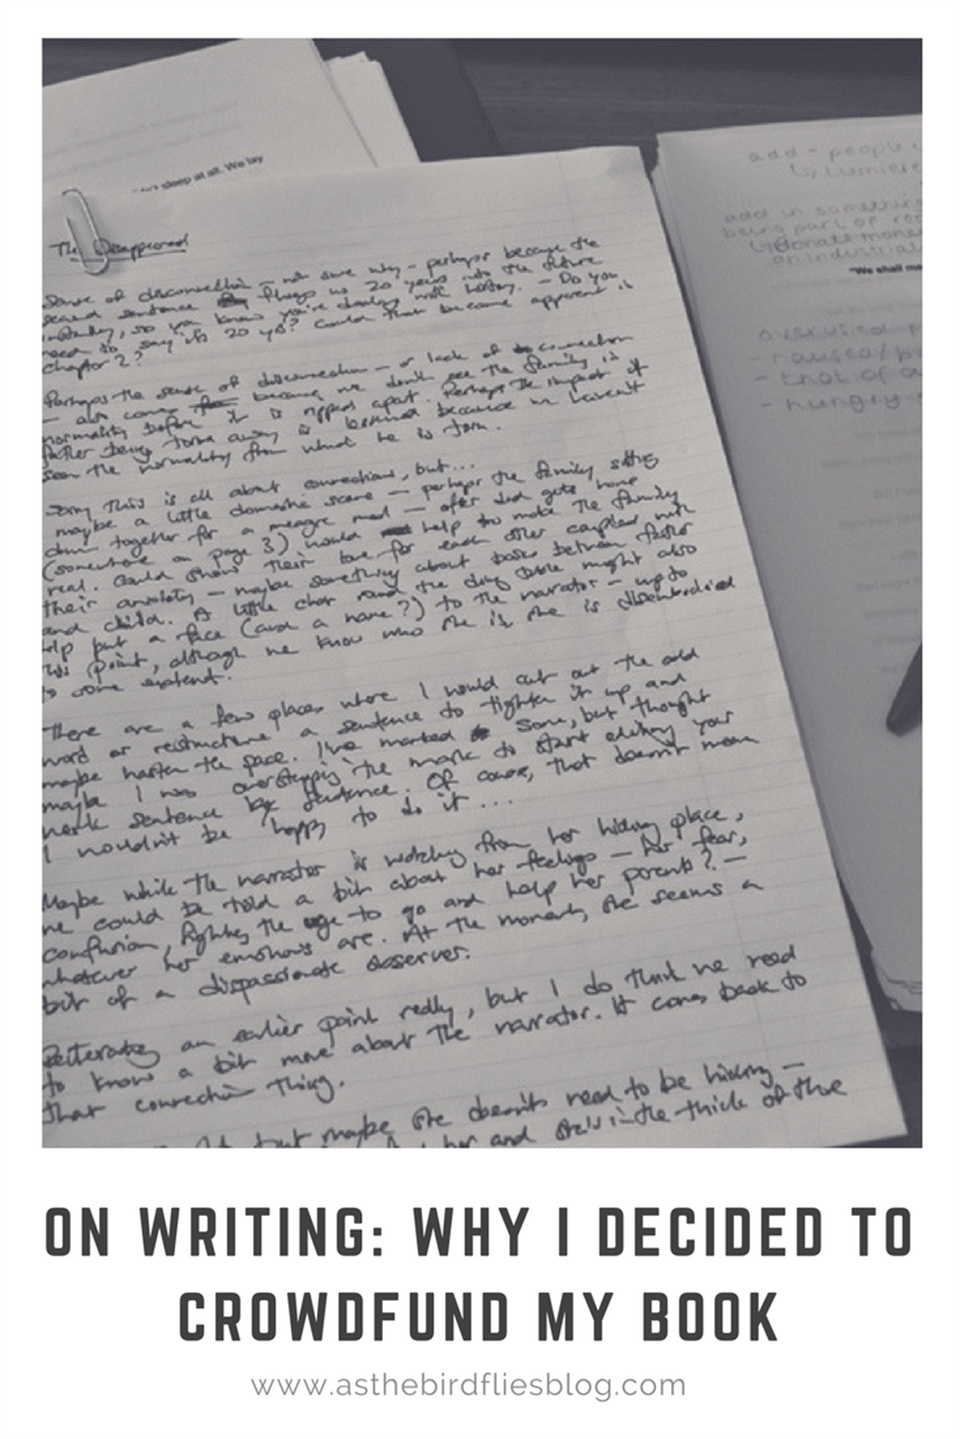 "Ars sleep at all. We lay
The Disappeared
Sense of disconnection – not sure why – perhaps because the
second sentence flings us 20 years into the future
instantly, so you know you're dealing with history. – Do you
need to say it's 20 yrs? Could that become apparent in
chapter 2?
Perhaps the sense of disconnection – or lack of connection
– also comes because we don't see the family in
normality before it is ripped apart. Perhaps the impact of
father being torn away is lessened because we haven't
seen the normality from what he is torn.
Sorry this is all about connection, but...
maybe a little domestic scene – perhaps the family sitting
down together for a meagre meal – after dad gets home
(somewhere on page 3) would help to make the family
real. Could show their love for each other coupled with
their anxiety – maybe something about books between father
and child. A little chat round the dining table might also
help put a face (and a name?) to the narrator – up to
this point, although we know who she is, she is disembodied
to some extent.
There are a few places where I would cut out the odd
word or restructure a sentence to tighten it up and
maybe hasten the pace. I've marked some, but thought
maybe I was overstepping the mark to start editing your
work sentence by sentence. Of course, that doesn't mean
I wouldn't be happy to do it...
Maybe while the narrator is watching from her hiding place,
we could be told a bit about her feelings – her fear,
confusion, fighting the urge to go and help her parents? –
whatever her emotions are. At the moment, she seems a
bit of a dispassionate observer.
Reiterating an earlier point really, but I do think we need
to know a bit more about the narrator. It comes back to
that connection thing.
but maybe she doesn't need to be hiding –
her and she's in the thick of the
add – people
Lumiere
add in something
being part of
donate money
an industrial
"We shall
overused
nausea/p
– that of a
– hungry
ON WRITING: WHY I DECIDED TO
CROWDFUND MY BOOK
www.asthebirdfliesblog.com